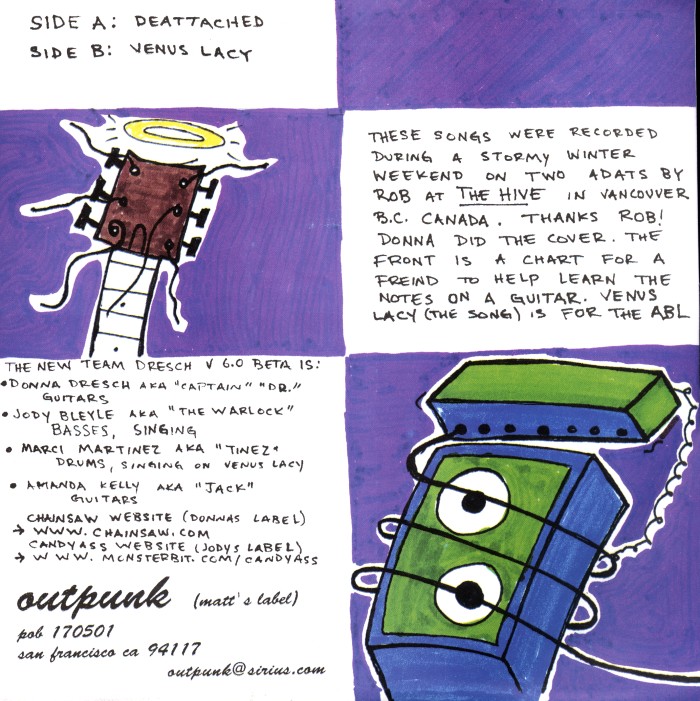 SIDE A: DEATTACHED
SIDE B: VENUS LACY
THESE SONGS WERE RECORDED
DURING A STORMY WINTER
WEEKEND ON TWO ADATS BY
ROB AT THE HIVE IN VANCOUVER
B.C. CANADA. THANKS ROB!
DONNA DID THE COVER. THE
FRONT IS A CHART FOR A
FREIND TO HELP LEARN THE
NOTES ON A GUITAR. VENUS
LACY (THE SONG) IS FOR THE ABL
THE NEW TEAM DRESCH V 6.0 BETA IS:
• DONNA DRESCH AKA "CAPTAIN" "DR."
GUITARS
• JODY BLEYLE AKA "THE WARLOCK"
BASSES, SINGING
• MARCI MARTINEZ AKA "TINEZ"
DRUMS, SINGING ON VENUS LACY
• AMANDA KELLY AKA "JACK"
GUITARS
CHAINSAW WEBSITE (DONNAS LABEL)
→ WWW.CHAINSAW.COM
CANDYASS WEBSITE (JODYS LABEL)
→ WWW.MONSTERBIT.COM/CANDYASS
outpunk (matt's label)
pob 170501
san francisco ca 94117
outpunk@sirius.com